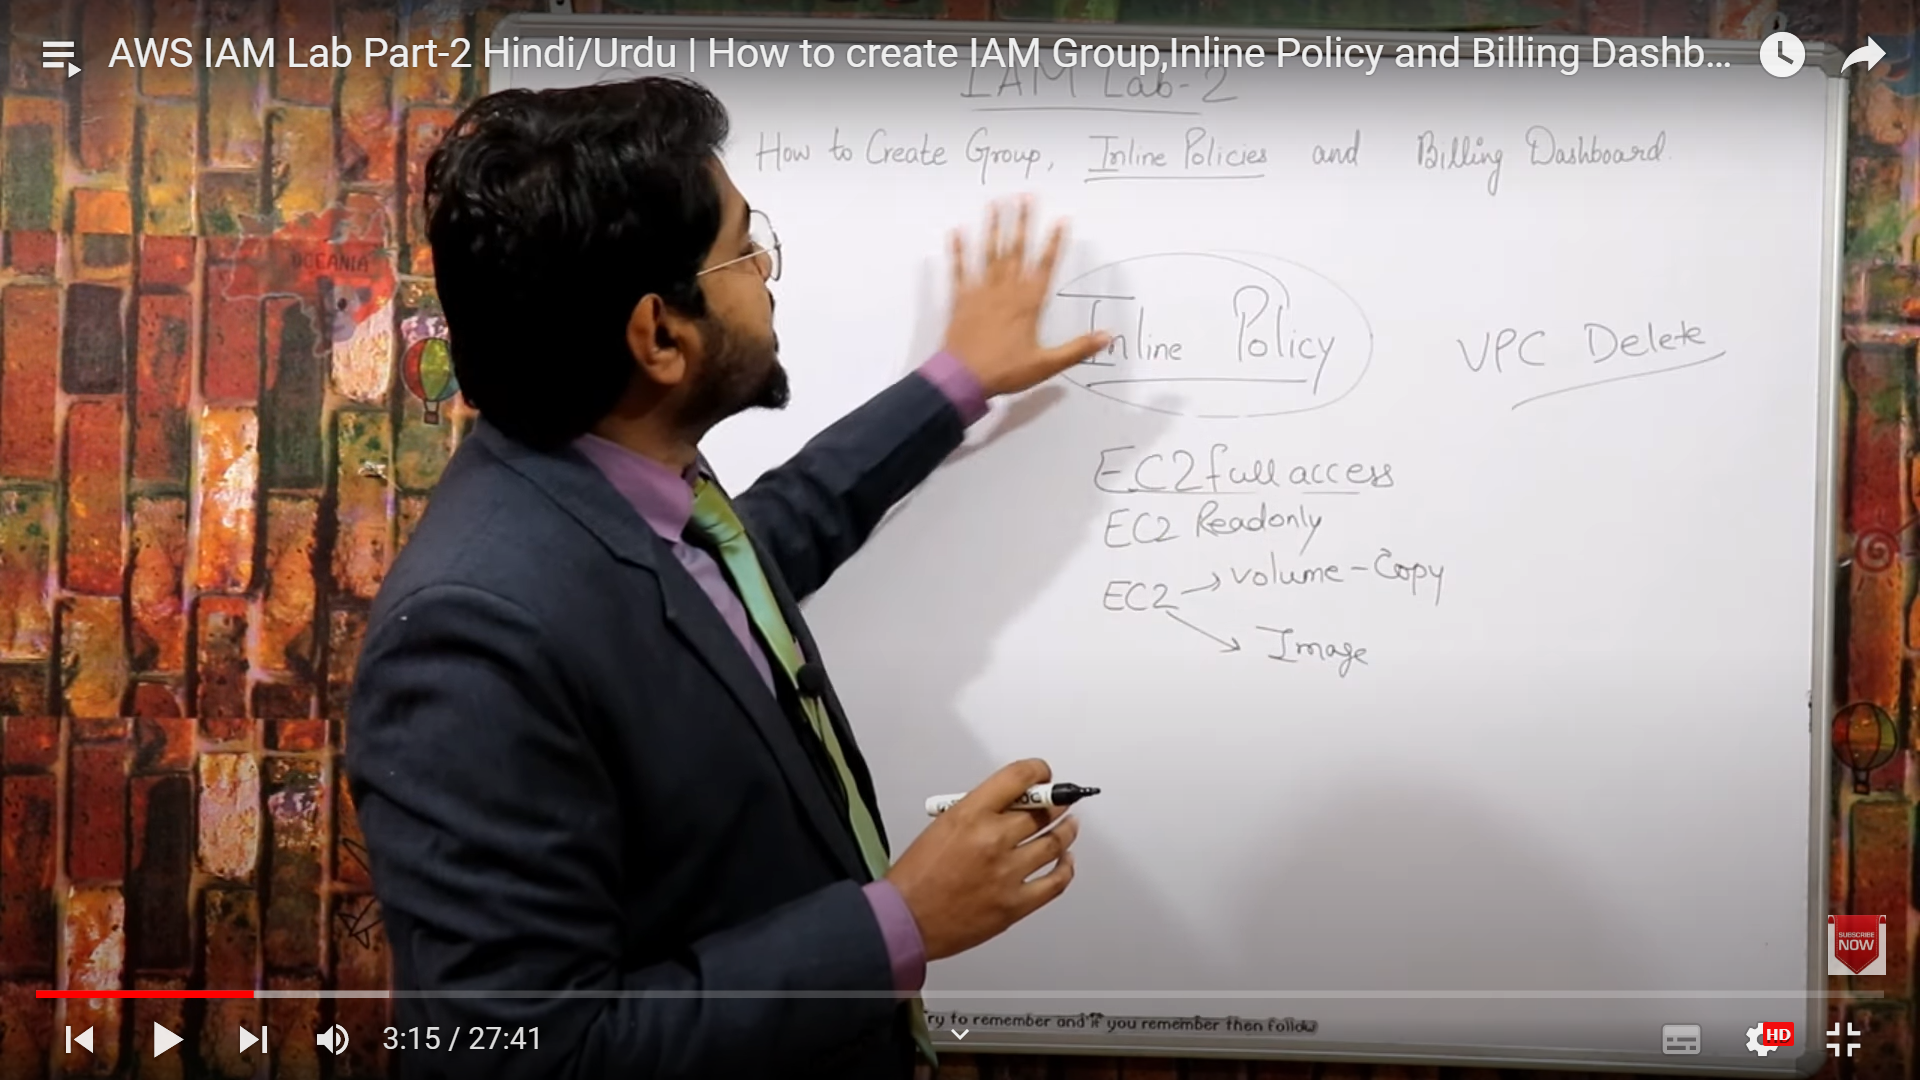 AWS IAM Lab Part-2 Hindi/Urdu | How to create IAM Group,Inline Policy and Billing Dashb...
IAM Lab-2
How to Create Group, Inline Policies and Billing Dashboard.
OCEANIA
Inline Policy
VPC Delete
EC2 full access
EC2 Readonly
EC2 → Volume - Copy
→ Image
SUBSCRIBE
NOW
3:15 / 27:41
ry to remember and if you remember then follow
HD